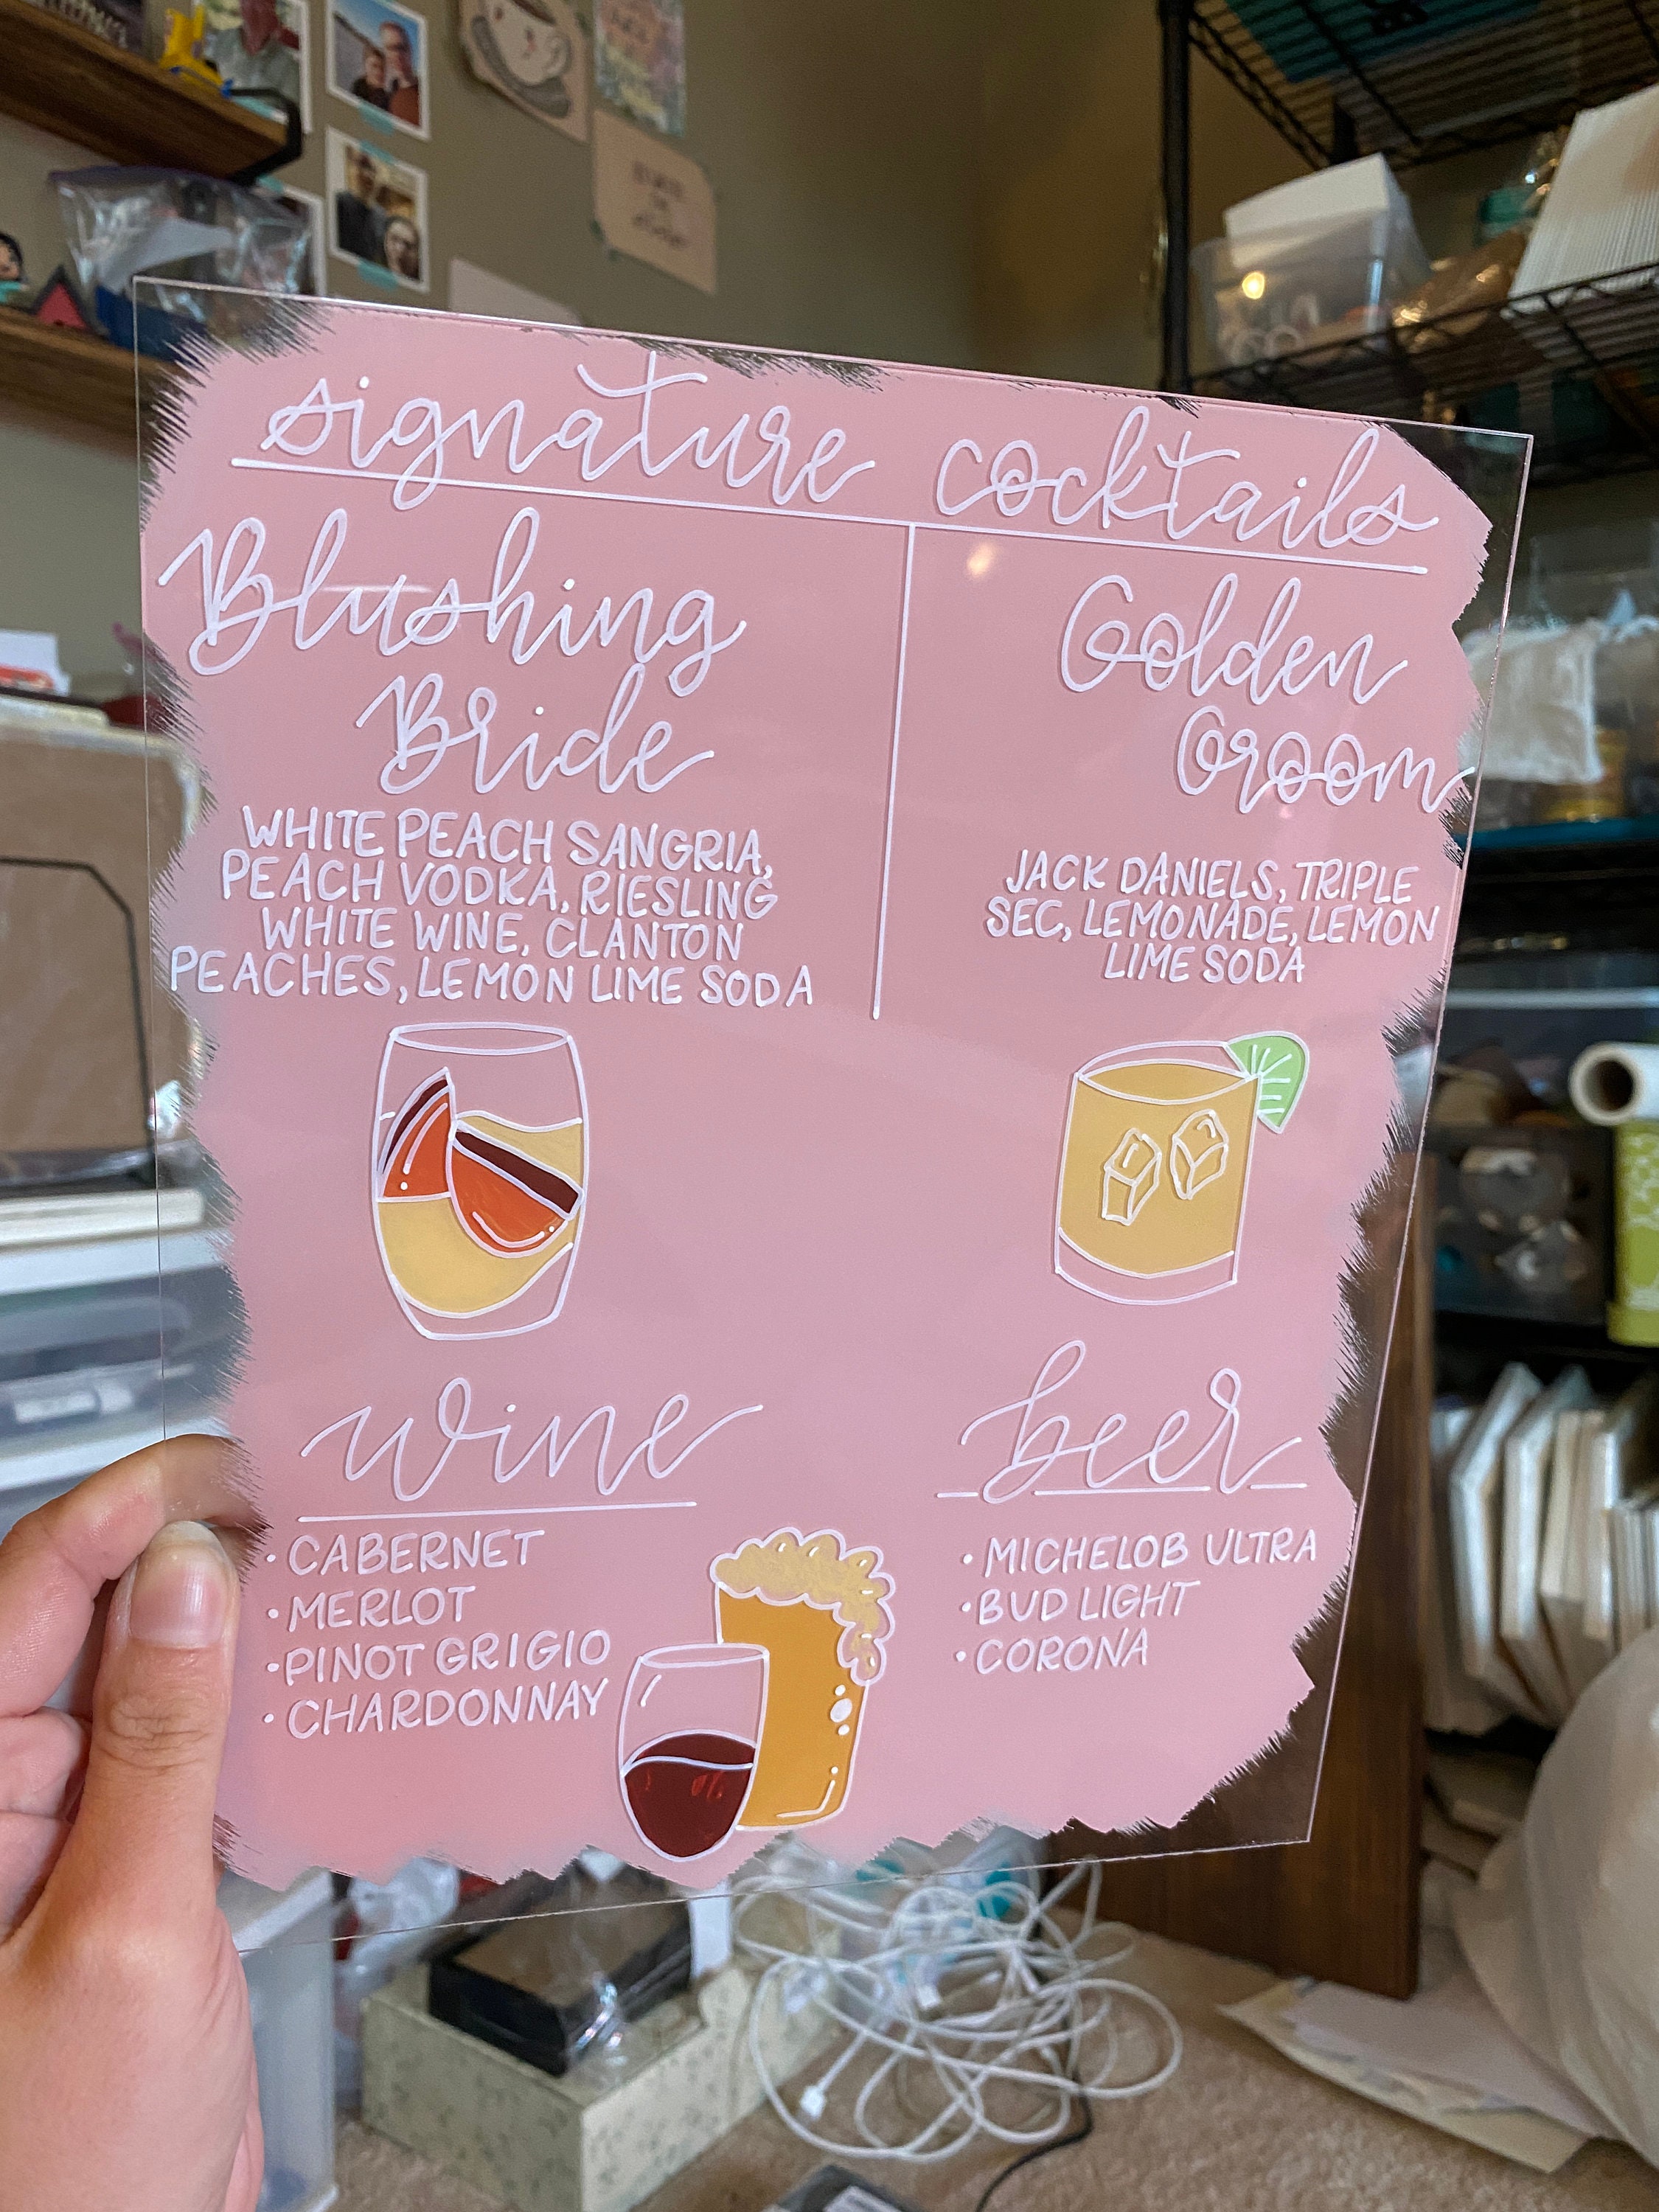 signature cocktails
Blushing
Bride
WHITE PEACH SANGRIA,
PEACH VODKA, RIESLING
WHITE WINE, CLANTON
PEACHES, LEMON LIME SODA
Golden
Groom
JACK DANIELS, TRIPLE
SEC, LEMONADE, LEMON
LIME SODA
wine
• CABERNET
• MERLOT
• PINOT GRIGIO
• CHARDONNAY
beer
• MICHELOB ULTRA
• BUD LIGHT
• CORONA